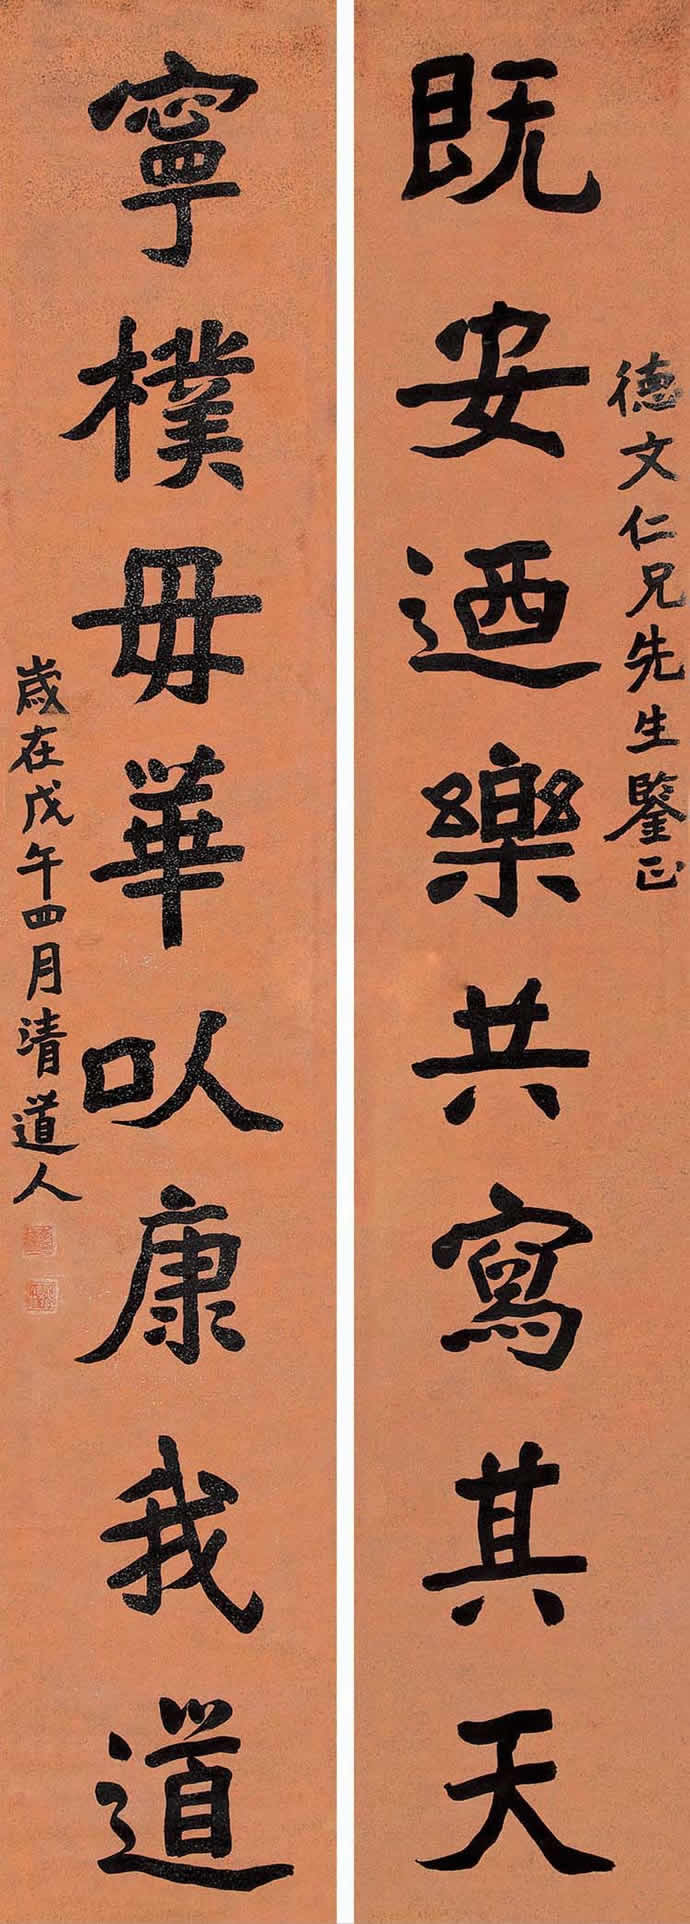 德文仁兄先生鑒正
既安迺樂共寫其天
寧樸毋華以康我道
歲在戊午四月清道人